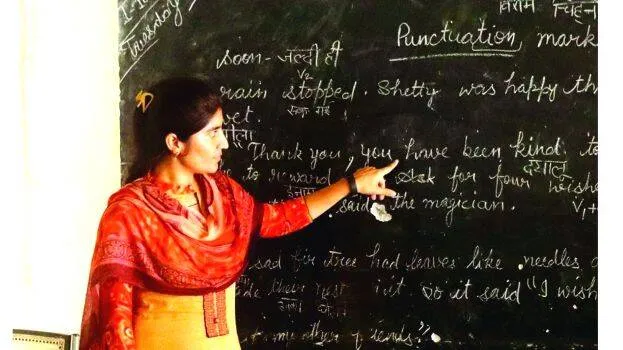 विराम चिह्न
Tuesday
Punctuation mark
soon - जल्दी ही
V2
rain stopped. Shetty was happy th
रुक गई
wet.
गीला
"Thank you, you have been kind to
दयालु
to reward Ask for four wishes
ईनाम
said the magician. V1+
sad fir tree had leaves like needles
it. So it said "I wish
my other friends."